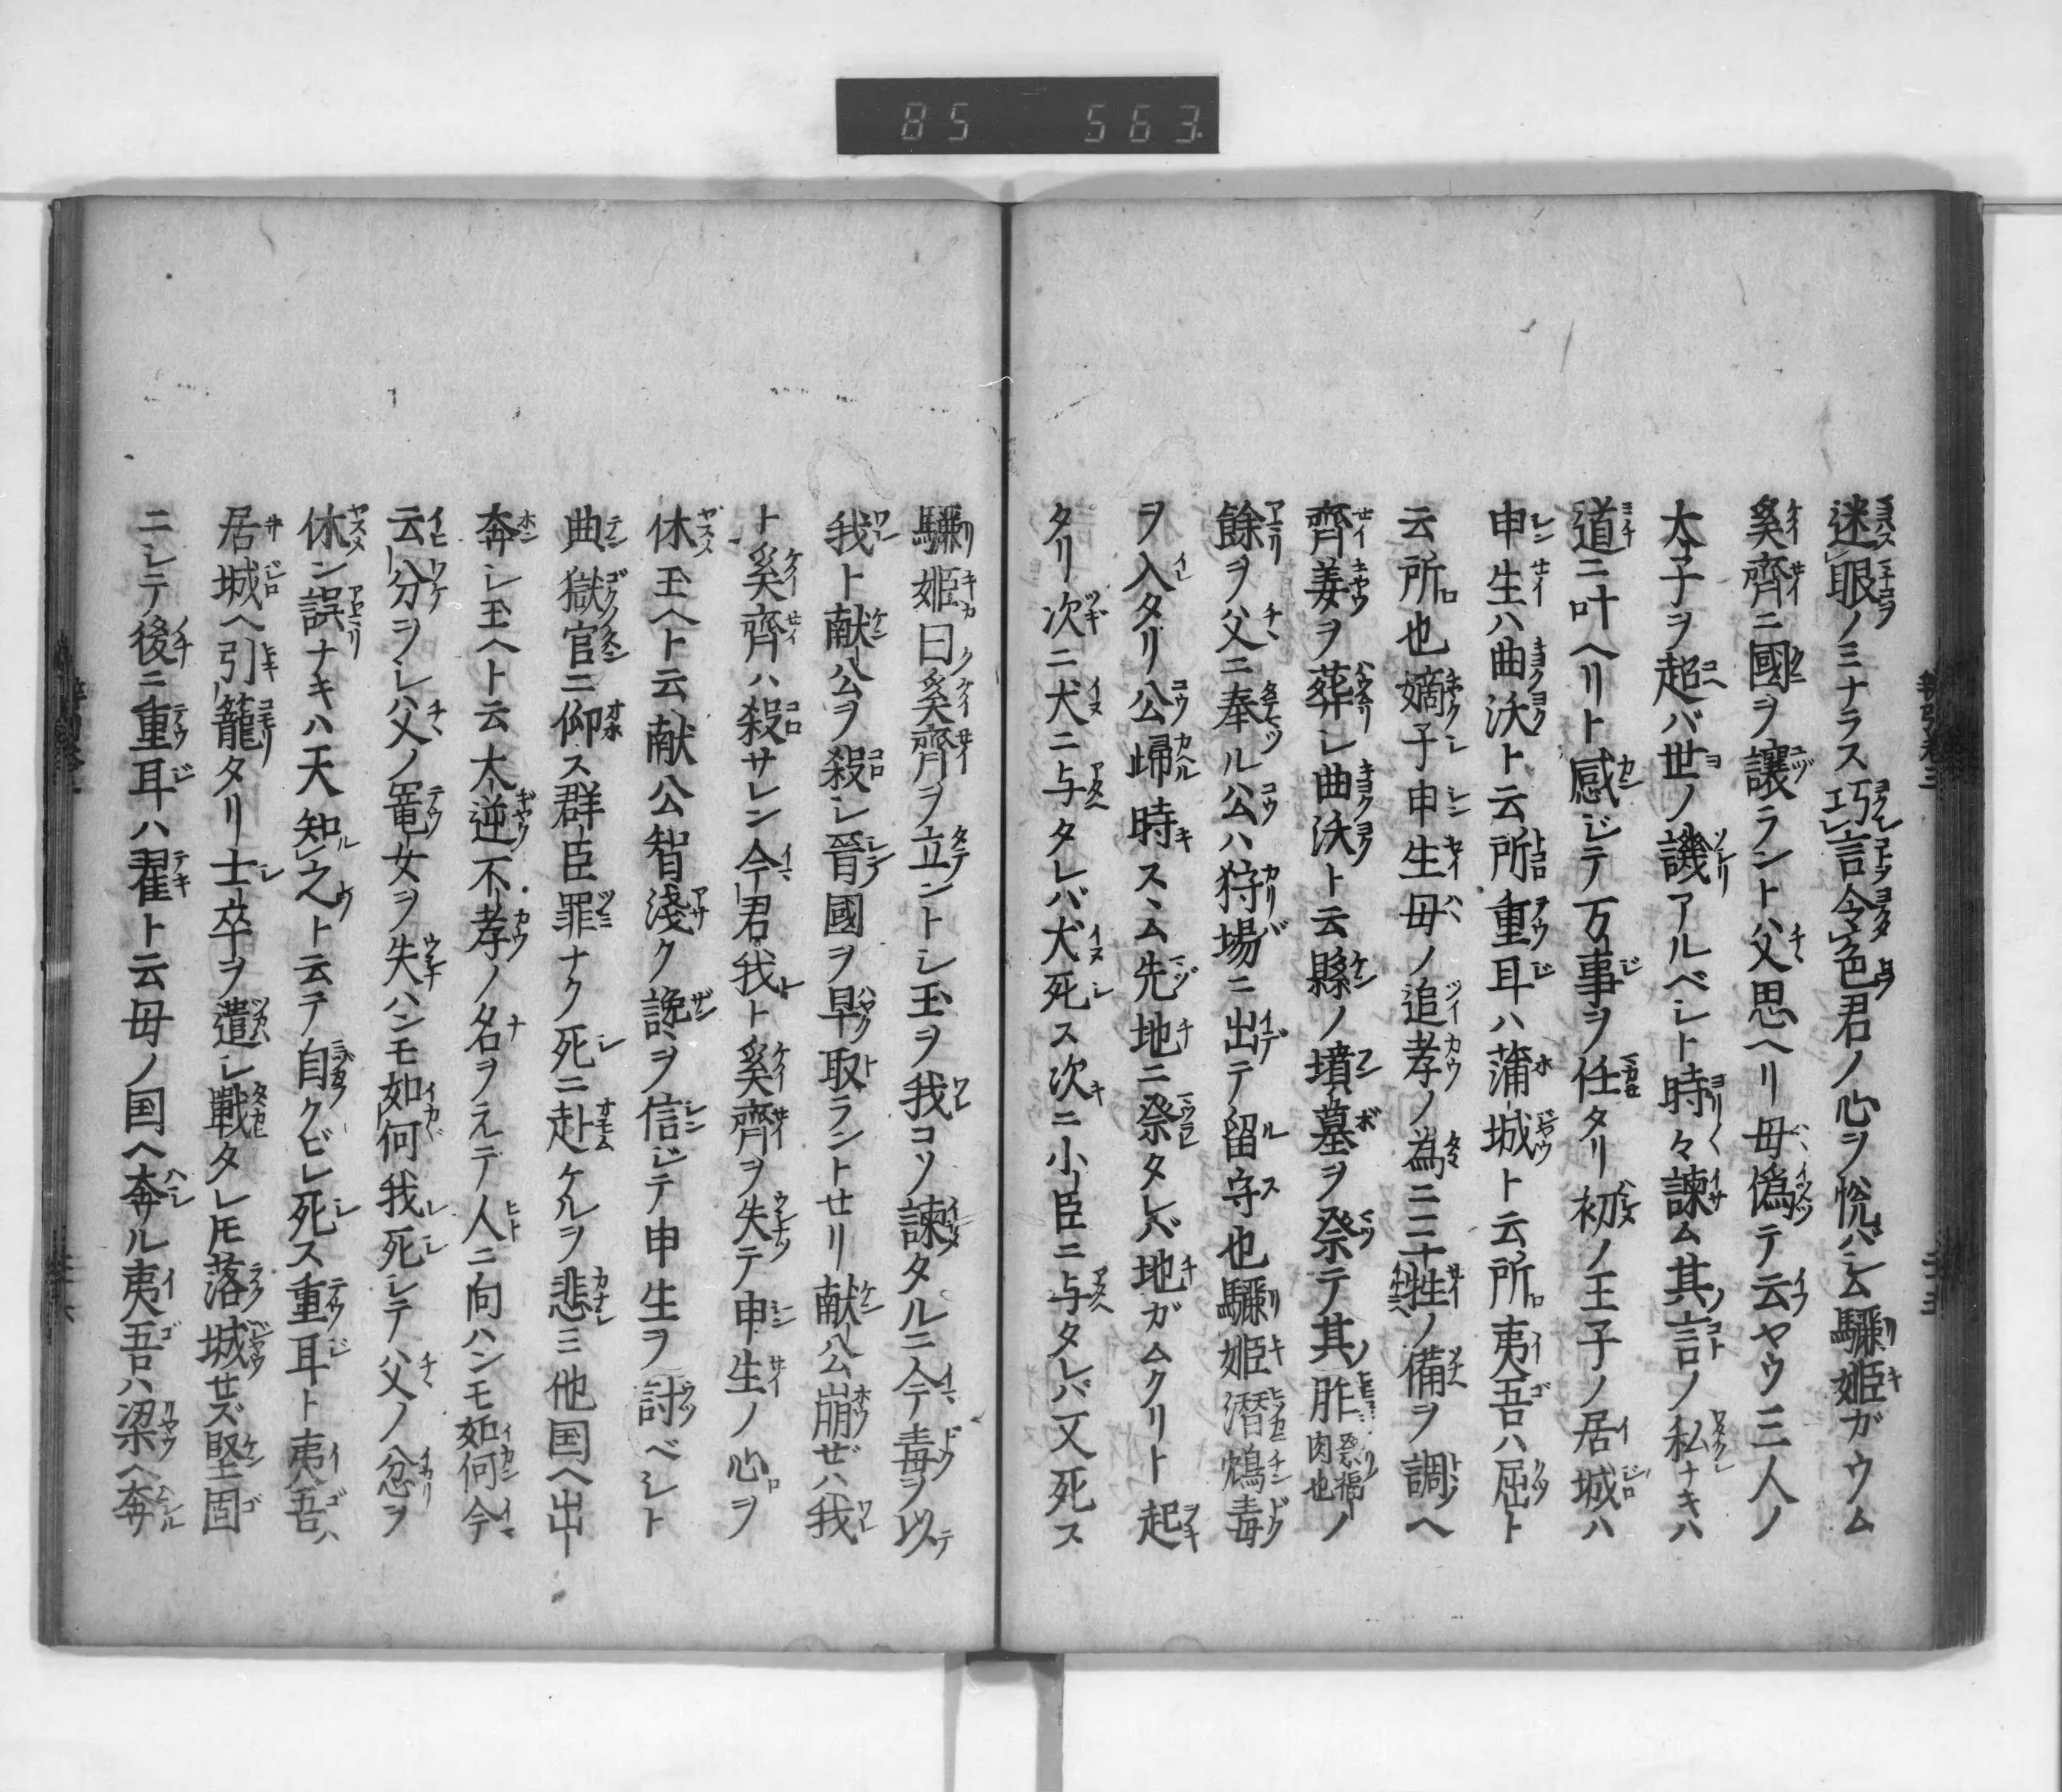 85 563
迷眼ノミナラス巧言令色君ノ心ヲ悦バシム驪姫ガウム
奚齊ニ國ヲ讓ラント父思ヘリ母偽テ云ヤウ三人ノ
太子ヲ超バ世ノ譏アルベシト時々諫ム其言ノ私ナキハ
道ニ叶ヘリト感ジテ万事ヲ任タリ初ノ王子ノ居城ハ
申生ハ曲沃ト云所重耳ハ蒲城ト云所夷吾ハ屈ト
云所也嫡子申生母ノ追孝ノ為ニ三牲ノ備ヲ調ヘ
齊姜ヲ葬シ曲沃ト云縣ノ墳墓ヲ祭テ其胙祭福ノ肉也ノ
餘ヲ父ニ奉ル公ハ狩場ニ出テ留守也驪姫潜鴆毒
ヲ入タリ公歸時スヽム先地ニ祭タレバ地ガムクリト起
タリ次ニ犬ニ与タレバ犬死ス次ニ小臣ニ与タレバ又死ス
驪姫曰奚齊ヲ立ントシ玉ヲ我コソ諫タルニ今テ毒ヲ以テ
我ト献公ヲ殺シ晉國ヲ早取ラントセリ献公崩ゼハ我
ト奚齊ハ殺サレン今君我ト奚齊ヲ失テ申生ノ心ヲ
休玉ヘト云献公智淺ク讒ヲ信ジテ申生ヲ討ベシト
典獄官ニ仰ス群臣罪ナク死ニ赴ケルヲ悲ミ他国ヘ出
奔シ玉ヘト云大逆不孝ノ名ヲヱテ人ニ向ハンモ如何今
云分ヲシ父ノ寵女ヲ失ハンモ如何我死シテ父ノ忿ヲ
休ン誤ナキハ天知之ト云テ自クビレ死ス重耳ト夷吾ハ
居城ヘ引籠タリ士卒ヲ遣シ戰タレ𪜈落城セズ堅固
ニシテ後ニ重耳ハ翟ト云母ノ国ヘ奔ル夷吾ハ梁ヘ奔